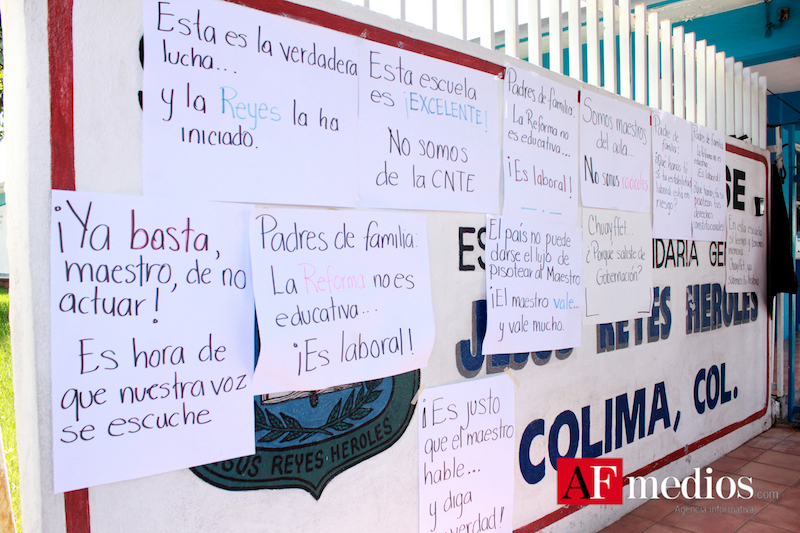 Esta es la verdadera
lucha...
y la Reyes la ha
iniciado.
Esta escuela
es ¡EXCELENTE!
No somos
de la CNTE
Padres de familia:
La Reforma no
es educativa...
¡Es laboral!
Somos maestros
del aula...
No somos
Padres de
familia:
la Reforma
no es educativa
¡Es laboral!
¡Ya basta,
maestro, de no
actuar!
Es hora de
que nuestra voz
se escuche
Padres de familia:
La Reforma no es
educativa...
¡Es laboral!
El país no puede
darse el lujo de
pisotear al Maestro
¡El maestro vale...
y vale mucho.
Chuayffet
¿Porque saliste de
Gobernación?
¡Es justo
que el maestro
hable...
y diga
verdad!
JESUS REYES HEROLES
COLIMA, COL.
SUS REYES HEROLES
AFmedios.com
Agencia informativa